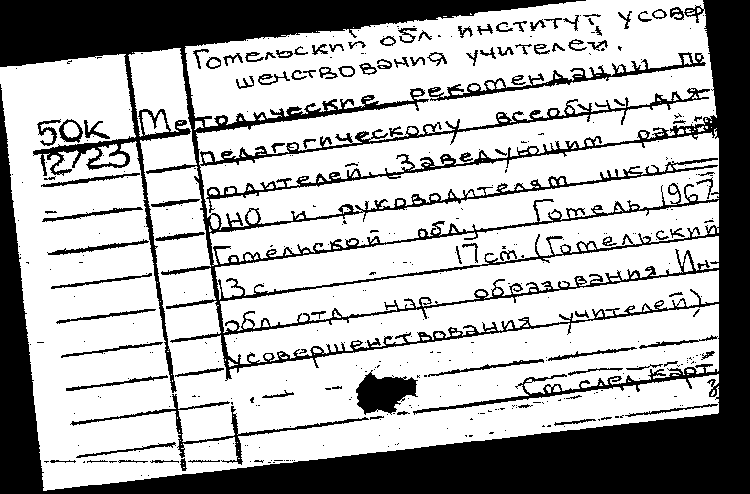 Гомельский обл. институт усовер
шенствования учителей.
50К Методические рекомендации по
12/23 педагогическому всеобучу для
родителей. [Заведующим рай
ОНО и руководителям школ
Гомельской обл.]. Гомель, 1967
13 с. 17 см. (Гомельский
обл. отд. нар. образования. Ин-
усовершенствования учителей).
См. след. карт.